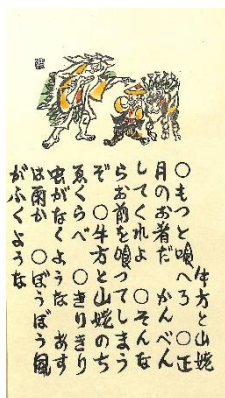 牛方と山姥
○もつと唄へろ ○正
月のお肴だ かんべん
してくれよ ○そんな
らお前を唄つてしまう
ぞ ○牛方と山姥のち
ゑくらべ ○きりきり
虫がなくような あす
は雨か ○ぼうぼう風
がふくような